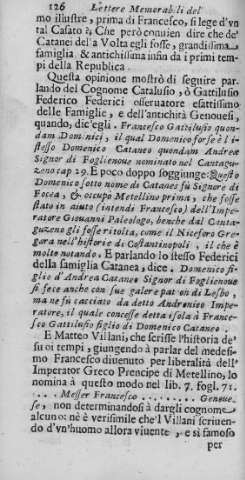 126 Lettere Memorabili del
mo illustre, prima di Francesco, si lege d'vn
tal Casato? Che però conuien dire che de'
Catanei della Volta egli fosse, grandissima
famiglia & antichissima insin da i primi tem-
pi della Republica.
Questa opinione mostrò di seguire par-
lando del Cognome Catalusio, ò Gattilusio
Federico Federici osseruatore esattissimo
delle Famiglie, e dell'antichità Genouesi,
quando, dic'egli, Francesco Gattilusio quon-
dam Domenici, il qual Domenico forse è l'i-
stesso Domenico Cataneo quondam Andreæ
Signor di Foglienoue nominato nel Cantagu-
zeno cap. 29. E poco doppo soggiunge: Questo
Domenico sotto nome di Cataneo fù Signore di
Focea, & occupò Metellino prima, che fosse
stato in aiuto (intende Francesco) dell'Impe-
ratore Giouanni Paleologo, benche dal Canta-
guzeno gli fosse ritolta, come il Niceforo Gre-
gora nell'historie di Costantinopoli, il che è
molto notando. E parlando lo stesso Federici
della famiglia Catanea, dice. Domenico fi-
glio d'Andrea Cataneo Signor di Foglienoue
si fece anche con sue galere patron di Lesbo,
ma ne fù cacciato da detto Andronico Impe-
ratore, il quale concesse detta isola à France-
sco Gattilusio figlio di Domenico Cataneo.
E Matteo Villani, che scrisse l'historia de'
suoi tempi, giungendo à parlar del medesi-
mo Francesco diuenuto per liberalità dell'
Imperator Greco Prencipe di Metellino, lo
nomina à questo modo nel lib. 7. fogl. 71.
.... Messer Francesco ........ Genoue-
se, non determinandosi à dargli cognome
alcuno: nè è verisimile che'l Villani scriuen-
do d'vn huomo allora viuente, e sì famoso
per